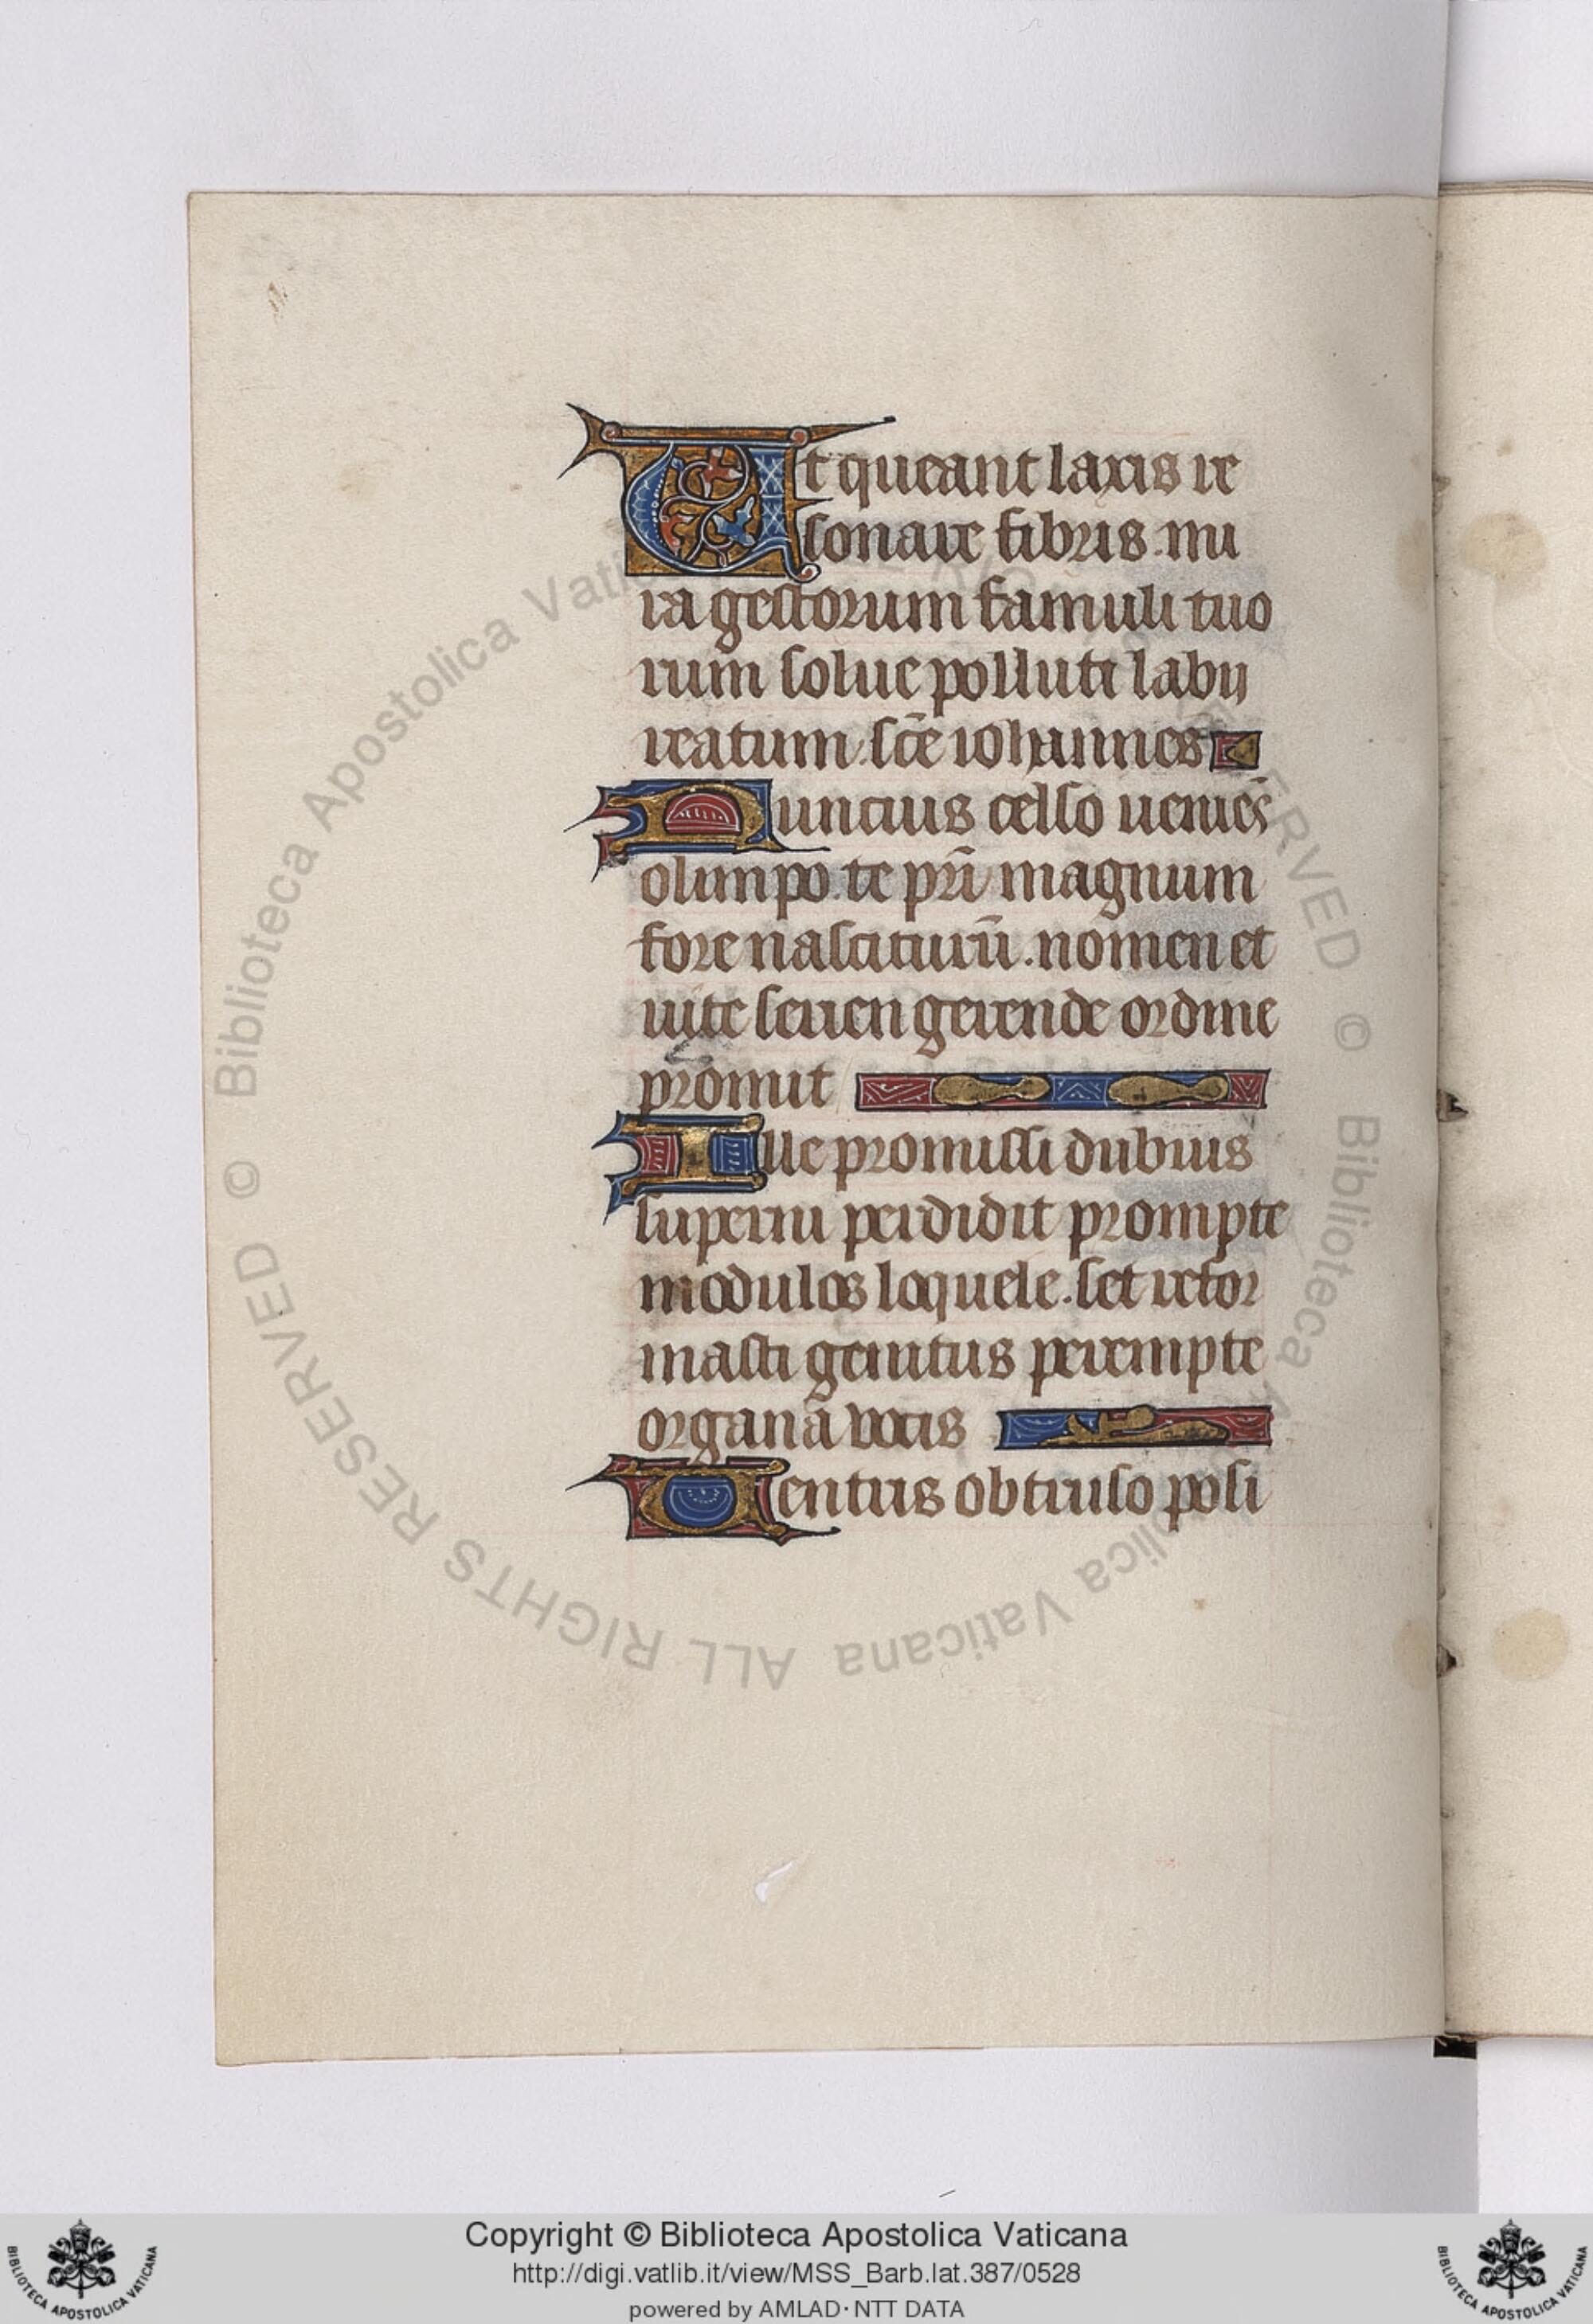 Ut queant laxis re
sonare fibris. mi
ra gestorum famuli tuo
rum solue polluti labii
reatum. sc̄e iohannes
Nuncius celso uenie̅s
olimpo. te pr̄i magnum
fore nasciturū. nomen et
uite serien gerende ordine
promit
Ille promissi dubius
superni perdidit prompte
modulos loquele. set refor
masti genitus perempte
organā uocis
Uentris obtruso posi
© Biblioteca Apostolica Vaticana ALL RIGHTS RESERVED
Copyright © Biblioteca Apostolica Vaticana
http://digi.vatlib.it/view/MSS_Barb.lat.387/0528
powered by AMLAD·NTT DATA
BIBLIOTECA APOSTOLICA VATICANA
BIBLIOTECA APOSTOLICA VATICANA